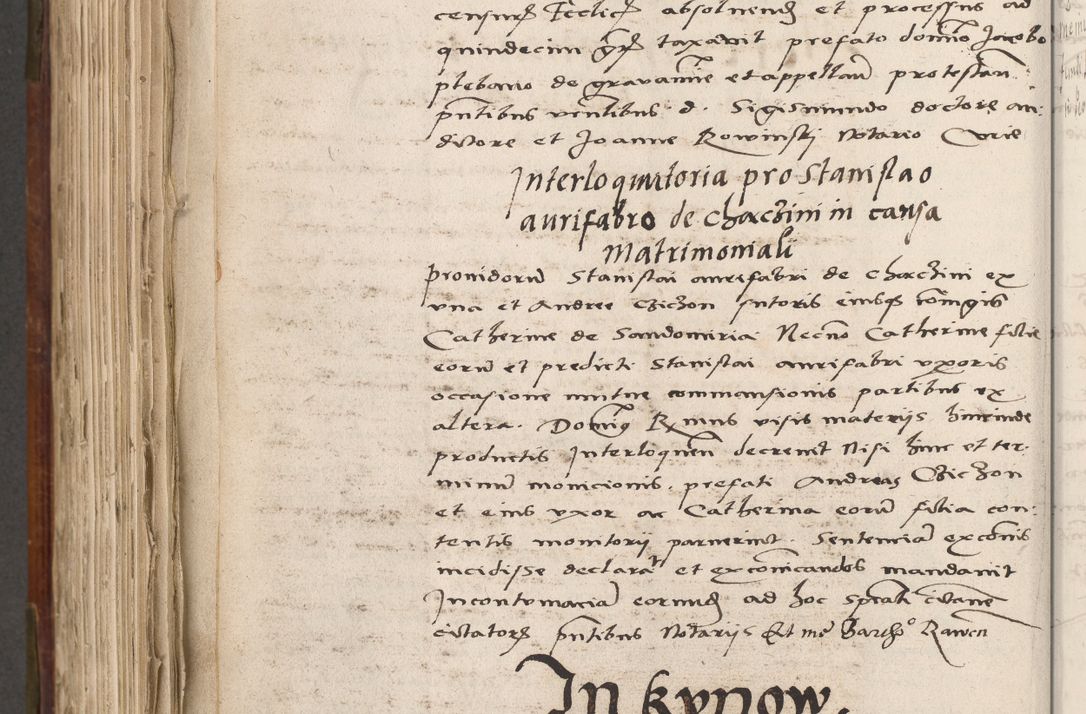 censurꝫ Ecclicꝫ absoluendꝫ et processus ad
quindecim grꝫ taxauit prefato domīo Jacobo
plebano de grauamīe et appellanī protestan̄
pn̄tibus ven̄tibus d. Sigismundo doctore au-
ditore et Joanne Rowinski Notario Curie
Interloquutoria pro Stanislao
aurifabro de Chaczini in causa
Matrimoniali
Prouidorū Stanislai aurifabri de Chaczini ex
vna et Andree Czichon sutoris eiusqꝫ coniugis
Catherine de Sandomiria Necnō Catherine filie
eorū et predicti Stanislai aurifabri vxoris
occasione mutue commansionis partibus ex
altera. Domīꝰ Rmus visis materijs hincinde
productis Interloquen̄ decreuit Nisi hinc et ter-
minū monicionis. prefati Andreas Czichon
et eius vxor ac Catherina eorū filia con-
tentis monitorij paruerint. Sentenciā excōnis
incidisse declarat et excōicandos mandauit
In contumaciā eorundꝫ ad hoc sp̄cialī citan̄e
citatorꝫ pn̄tibus Notarijs Et me Bartho Rawen̄
In kynow.